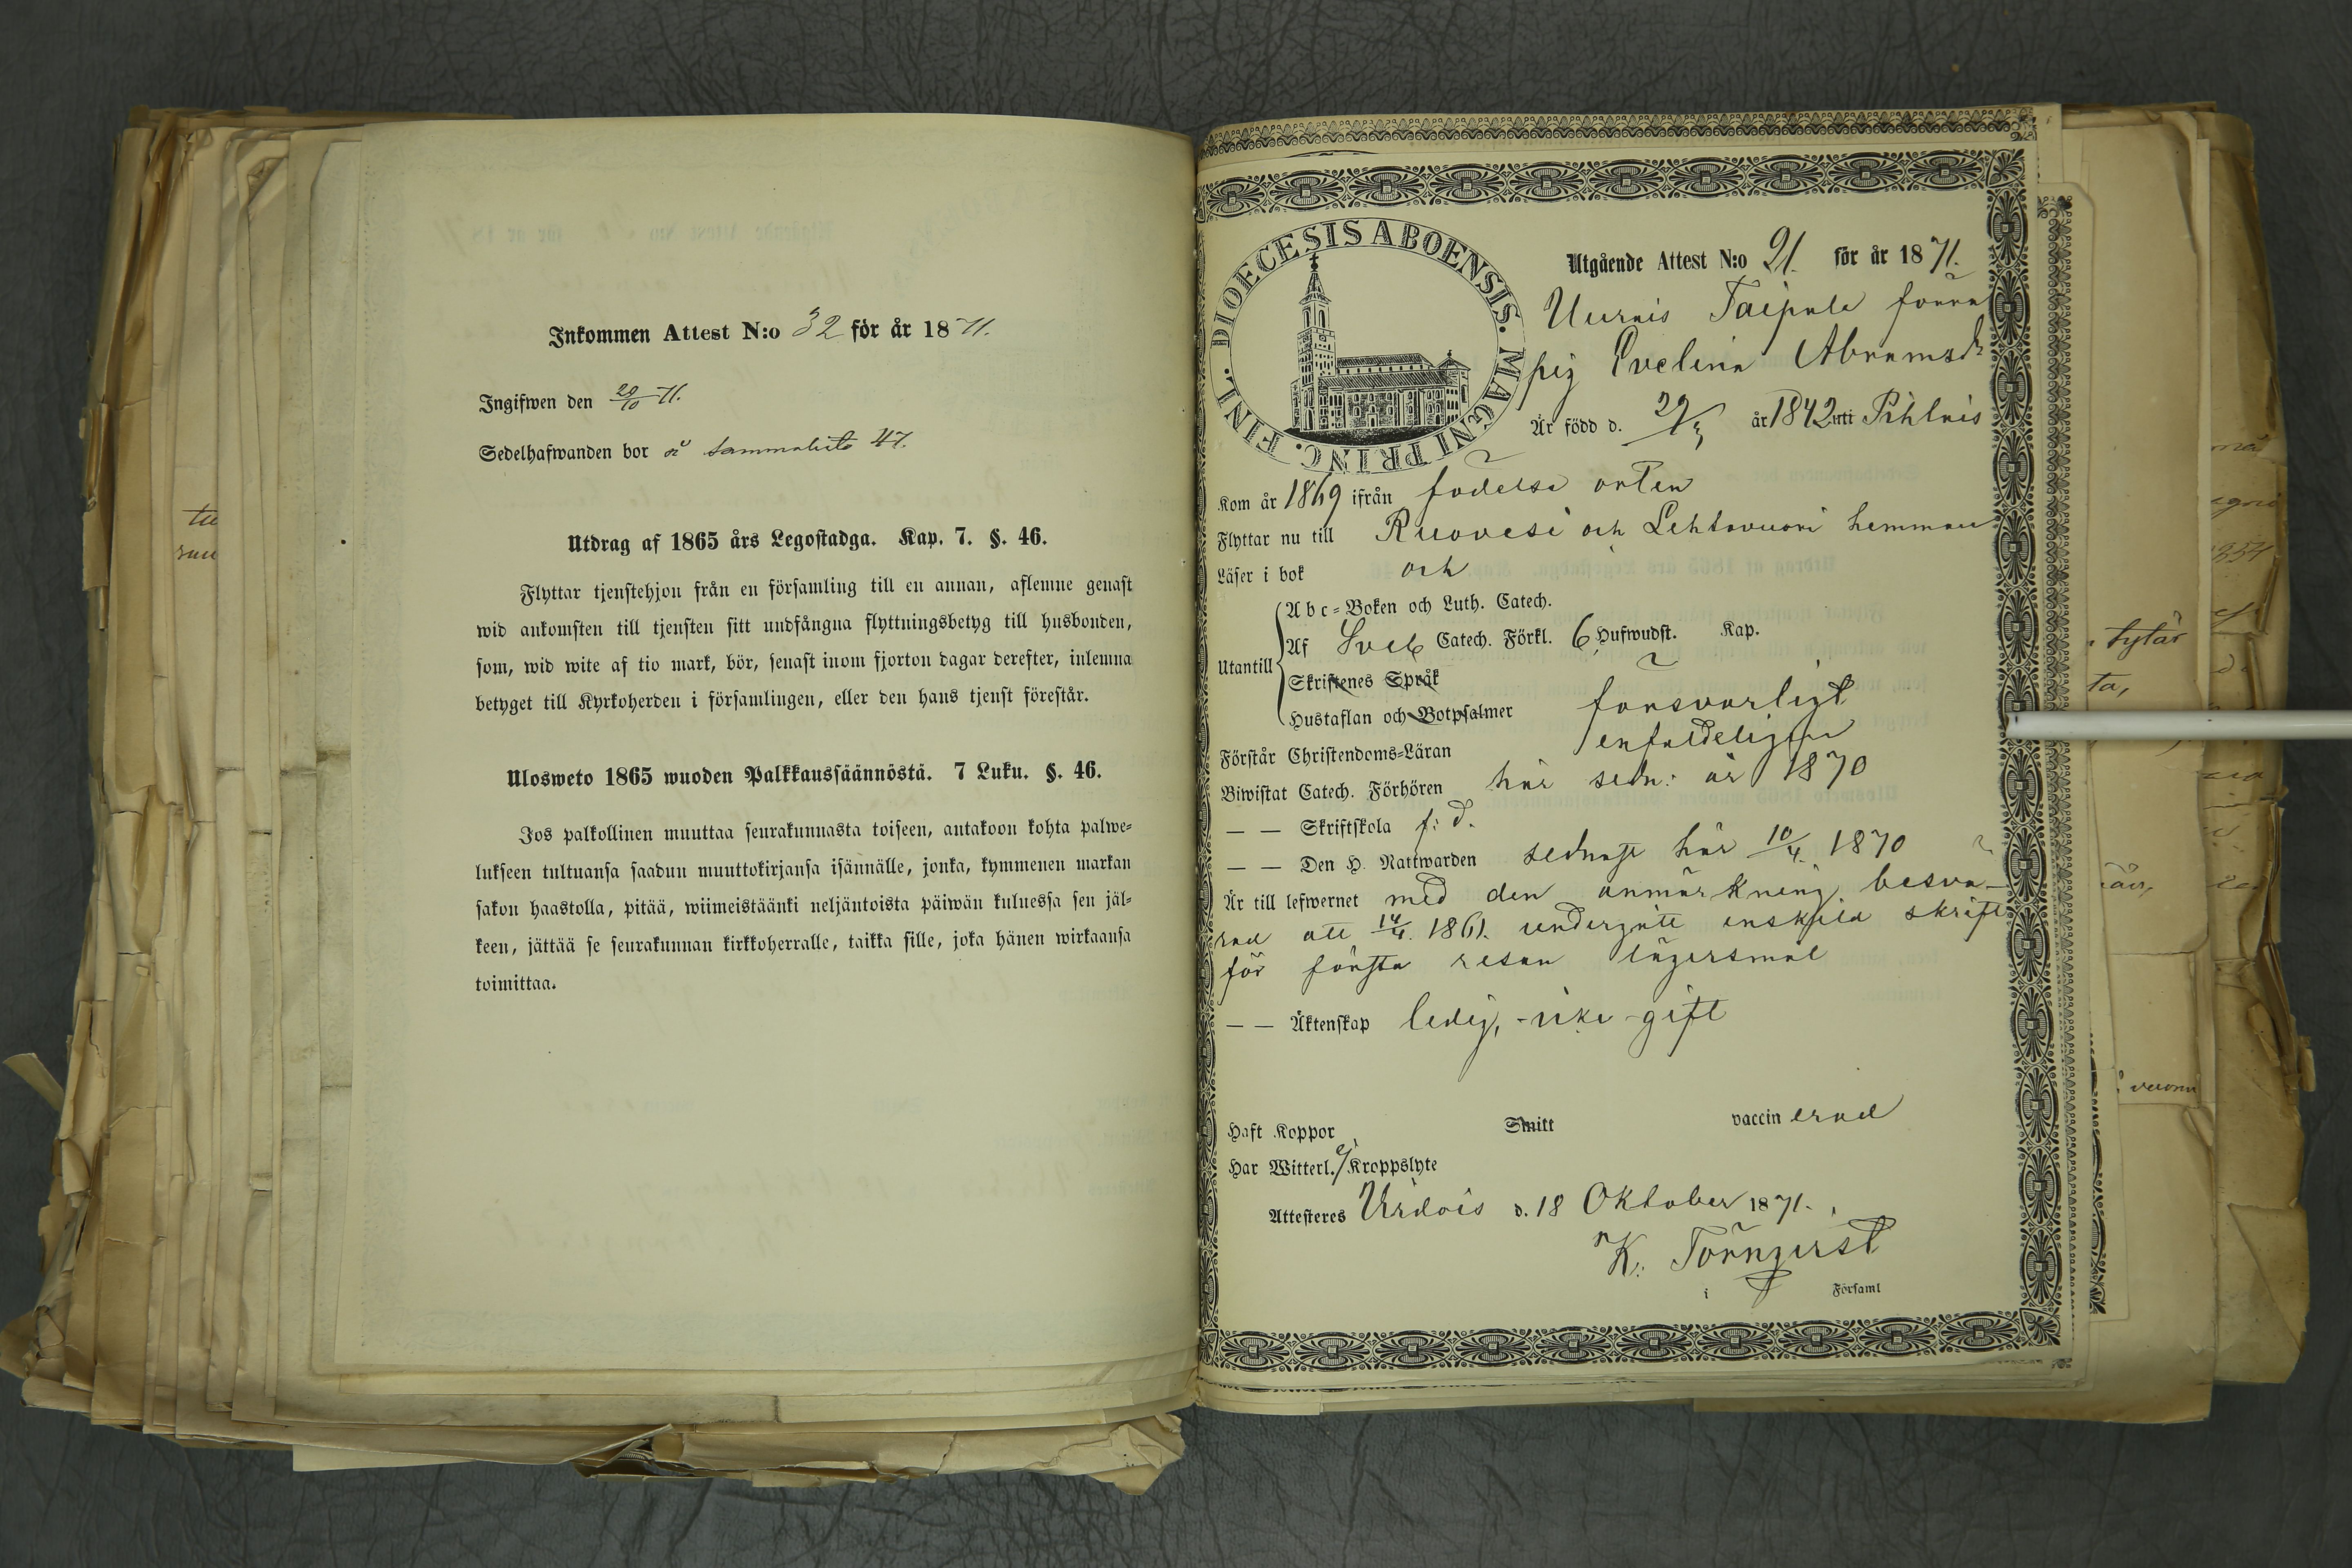 Inkommen Attest N:o 32 för år 1871.
Ingifwen den 20/10 71.
Sedelhafwanden bor å sammalisto 47.
Utdrag af 1865 års Legostadga. Kap. 7. §. 46.
Flyttar tjenstehjon från en församling till en annan, aflemne genast
wid ankomsten till tjensten sitt undfångna flyttningsbetyg till husbonden,
som, wid wite af tio mark, bör, senast inom fjorton dagar derefter, inlemna
betyget till Kyrkoherden i församlingen, eller den hans tjenst förestår.
Ulosweto 1865 wuoden Palkkaussäännöstä. 7 Luku. §. 46.
Jos palkollinen muuttaa seurakunnasta toiseen, antakoon kohta palwe-
lukseen tultuansa saadun muuttokirjansa isännälle, jonka, kymmenen markan
sakon haastolla, pitää, wiimeistäänki neljäntoista päiwän kuluessa sen jäl-
keen, jättää se seurakunnan kirkkoherralle, taikka sille, joka hänen wirkaansa
toimittaa.
DIOECESIS ABOENSIS. MAGNI PRINC. FINL.
Utgående Attest N:o 21. för år 1871.
Uurais Taipale förra
pig Evelina Abramsdr
Är född d. 29/3 år 1842 uti Pihlais
Kom år 1869 ifrån födelse orten
Flyttar nu till Ruovesi och Lehtovuori hemman
Läser i bok och
Utantill
Abc-Boken och Luth. Catech.
Af Sveb Catech. Förkl. 6 Hufwudst. Kap.
Skriftenes Språk
Hustaflan och Botpsalmer försvarligt
Förstår Christendoms-Läran enfaldeligen
Biwistat Catech. Förhören här sedn: år 1870
— — Skriftskola f: d.
— — Den H. Nattwarden sednast här 10/4. 1870
Är till lefwernet med den anmärkning besvä-
rad att 14/4. 1861. undergått enskild skrift
för första resan lägersmål
— — Äktenskap ledig, -icke -gift
Haft Koppor Smitt vaccin erad
Har Witterl. ej Kroppslyte
Attesteres Urdais d. 18 Oktober 1871.
K: Törnqvist
i Församl